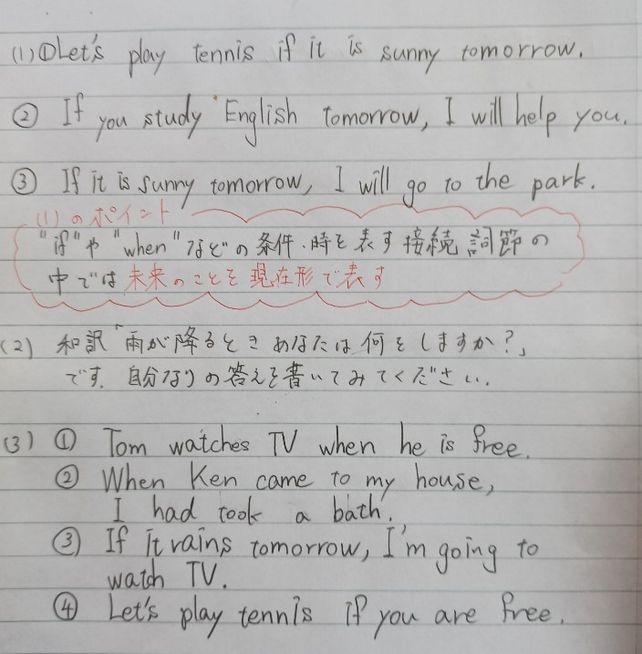 (1)①Let's play tennis if it is sunny tomorrow.
② If you study English tomorrow, I will help you.
③ If it is sunny tomorrow, I will go to the park.
(1)のポイント
"if"や"when"などの条件・時を表す接続詞節の
中では未来のことを現在形で表す
(2) 和訳「雨が降るときあなたは何をしますか?」
です. 自分なりの答えを書いてみてください.
(3) ① Tom watches TV when he is free.
② When Ken came to my house,
I had took a bath.
③ If it rains tomorrow, I'm going to
watch TV.
④ Let's play tennis if you are free.